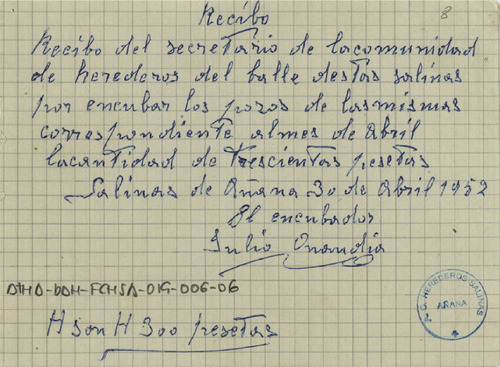 Recibo
8
Recibo del secretario de lacomunidad
de herederos del balle destas salinas
por encubar los pozos de lasmismas
correspondiente almes de Abril
lacantidad de trescientas pesetas
Salinas de Añana 30 de Abril 1952
El encubador
Julio
DTHA-DAH-FCHSA-019-006-06
# son # 300 pesetas
G. HEREDEROS SALINAS
AÑANA